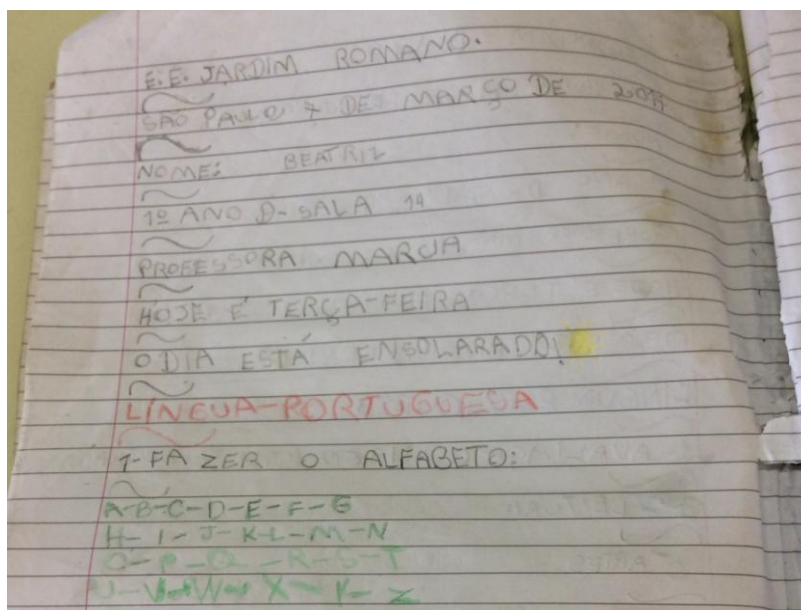 E.E. JARDIM ROMANO.
SÃO PAULO 7 DE MARÇO DE
NOME: BEATRIZ
1º ANO D-SALA 14
PROFESSORA MARCIA
HOJE É TERÇA-FEIRA
O DIA ESTÁ ENSOLARADO!
LÍNGUA-PORTUGUESA
1-FAZER O ALFABETO:
A-B-C-D-E-F-G
H-I-J-K-L-M-N
O-P-Q-R-S-T
U-V-W-X-Y-Z